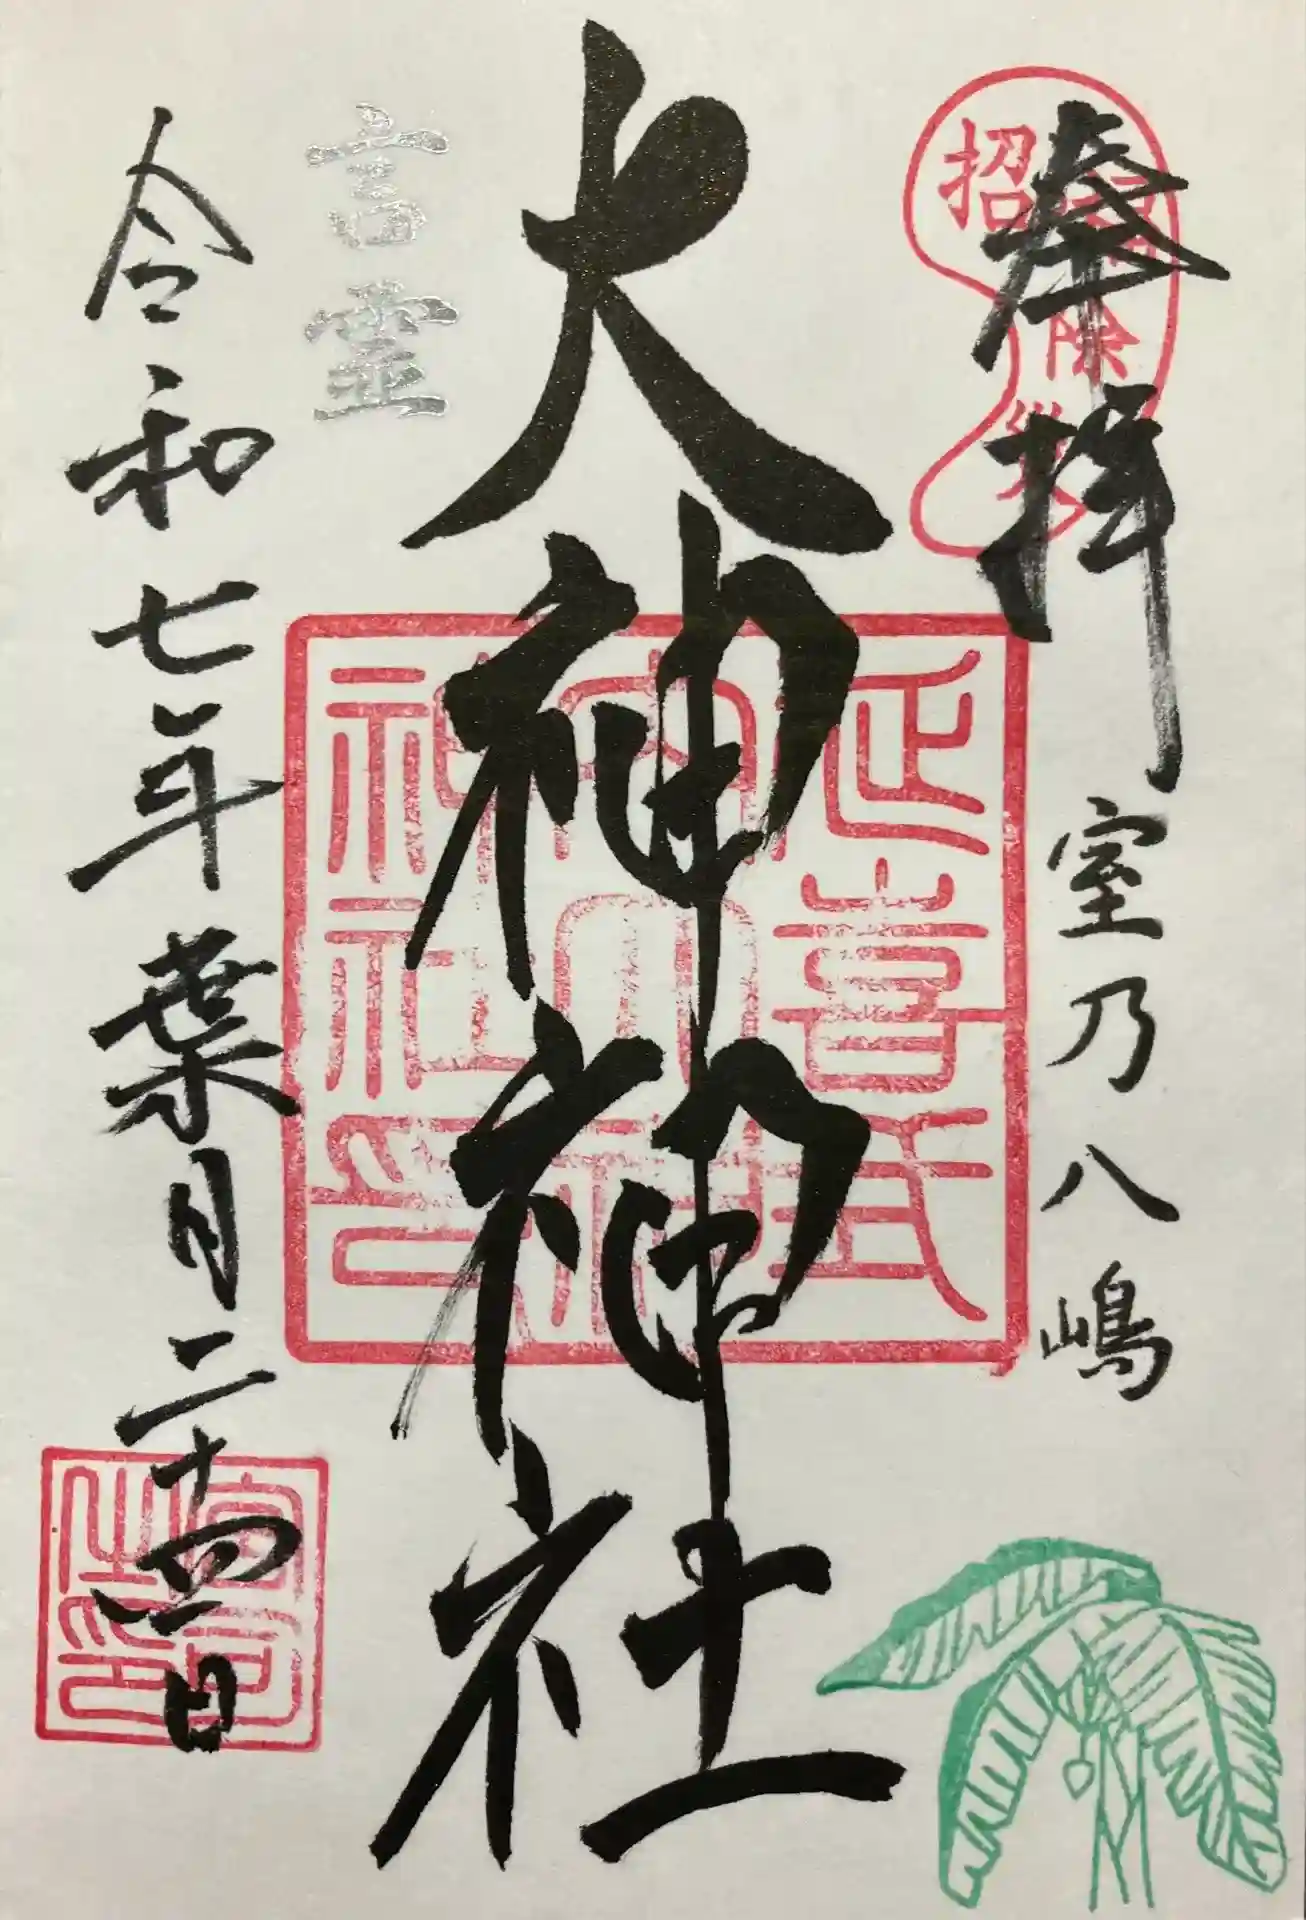 奉拝
招福除災
室乃八嶋
大神神社
延喜式
内大神
神社印
言霊
令和七年葉月二十四日
宮司
之印